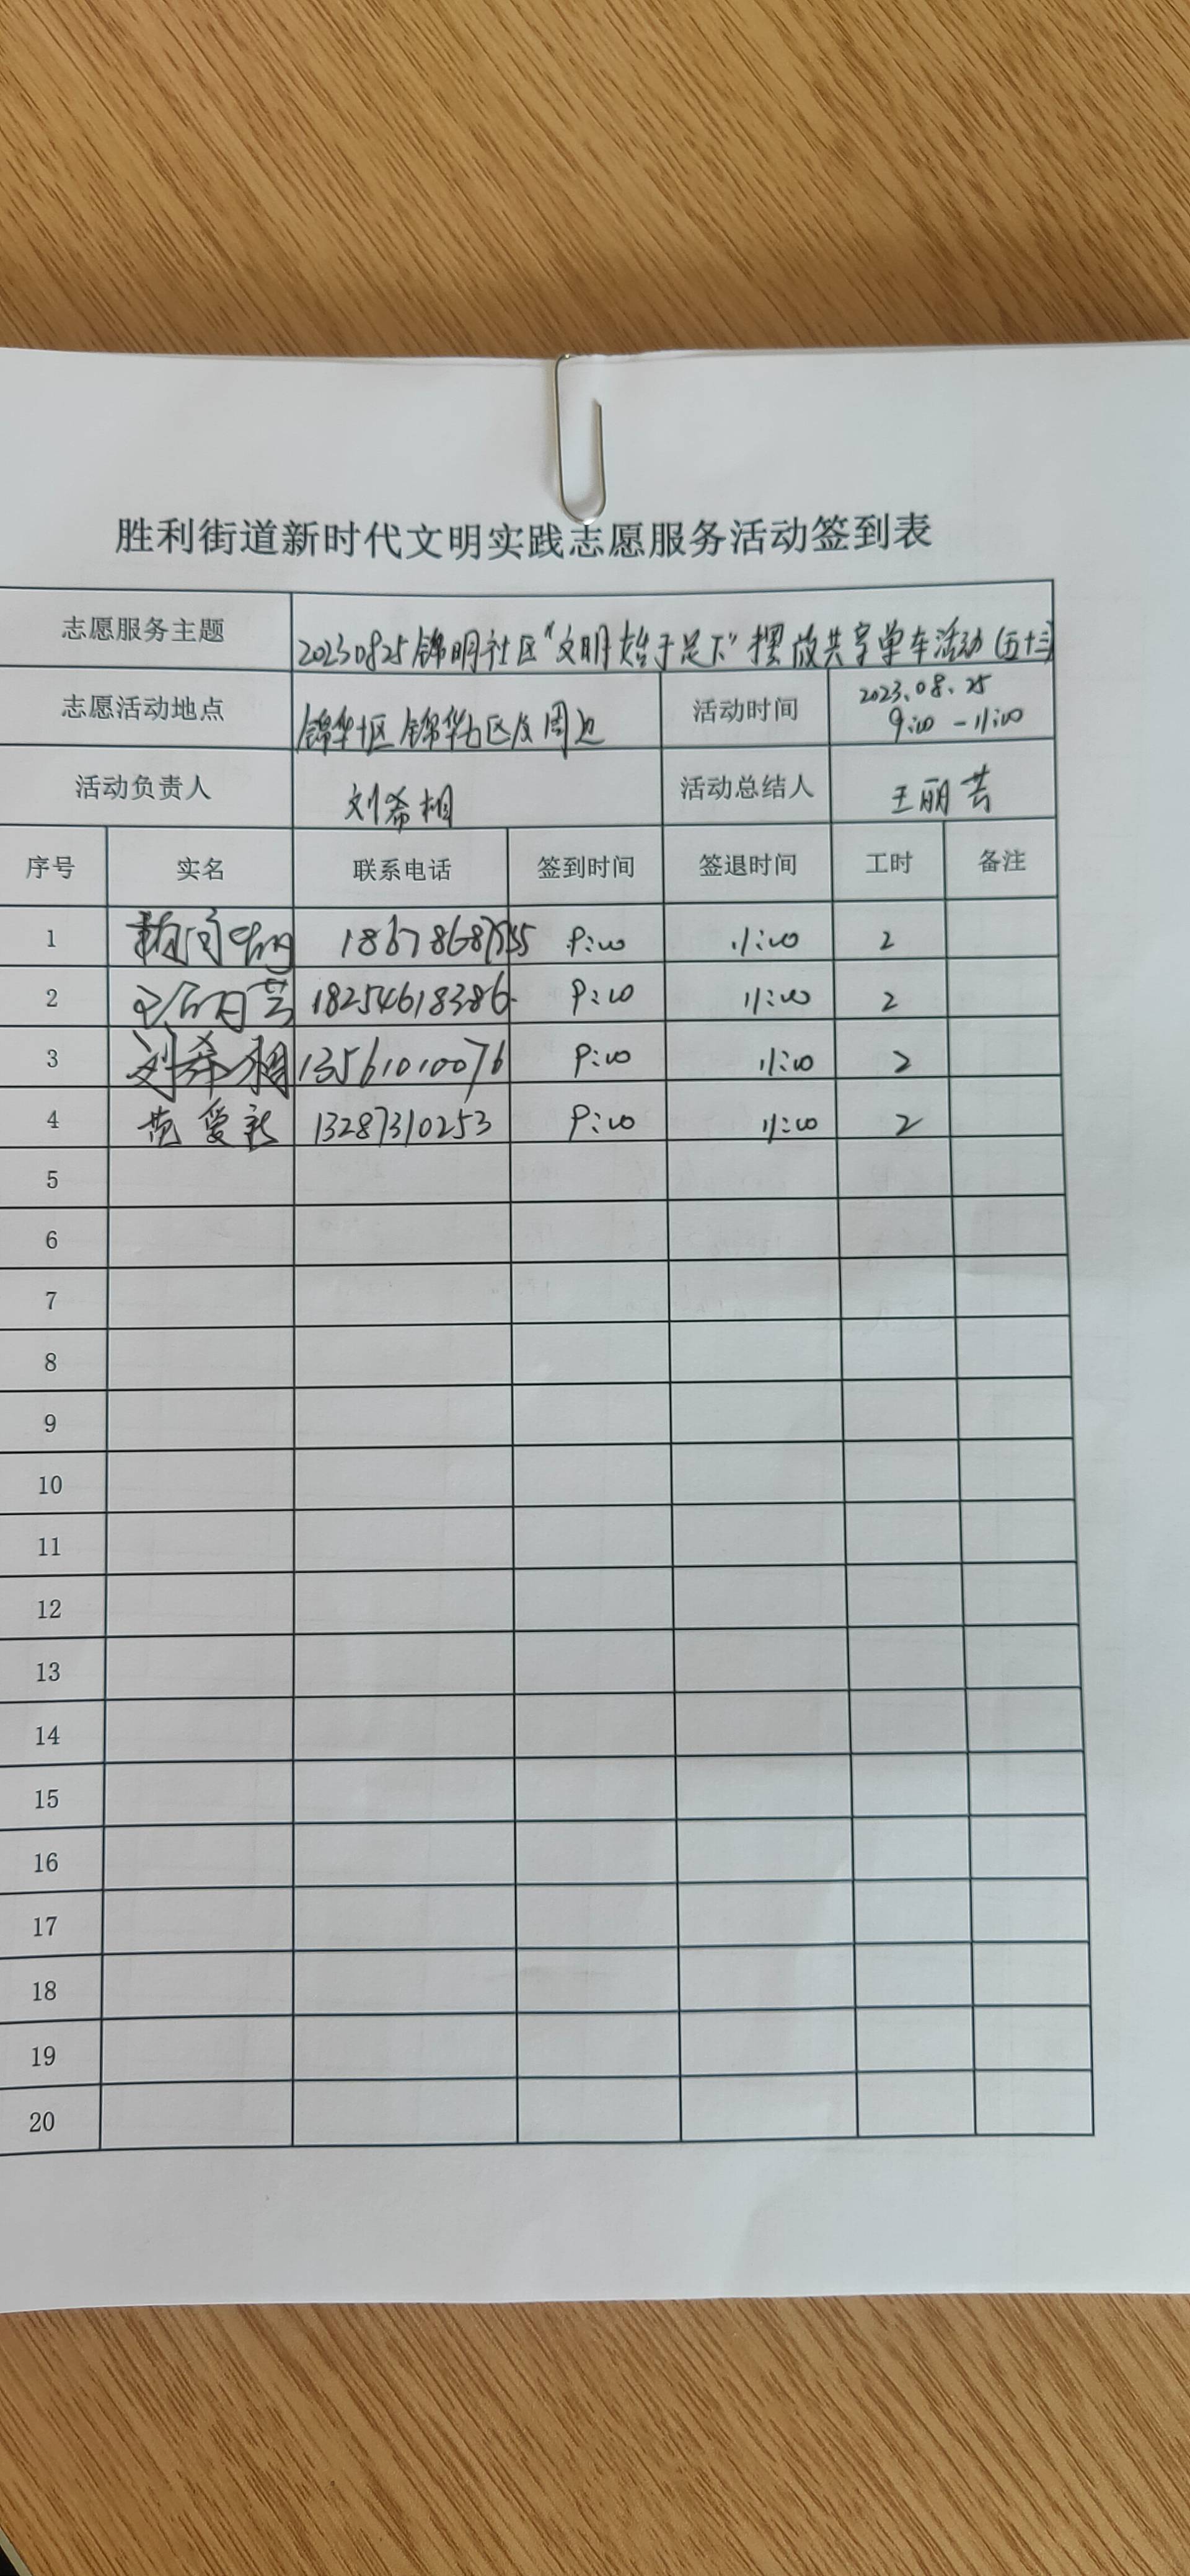 胜利街道新时代文明实践志愿服务活动签到表
志愿服务主题 20230825锦明社区“文明始于足下”摆放共享单车活动(五十三)
志愿活动地点 锦华十区 锦华七区及周边 活动时间 2023.08.25 9:00-11:00
活动负责人 刘希桐 活动总结人 王丽芸
序号 实名 联系电话 签到时间 签退时间 工时 备注
1 9:00 11:00 2
2 王丽芸 18254618386 9:00 11:00 2
3 刘希桐 13561010076 9:00 11:00 2
4 范爱新 13287310253 9:00 11:00 2
5
6
7
8
9
10
11
12
13
14
15
16
17
18
19
20